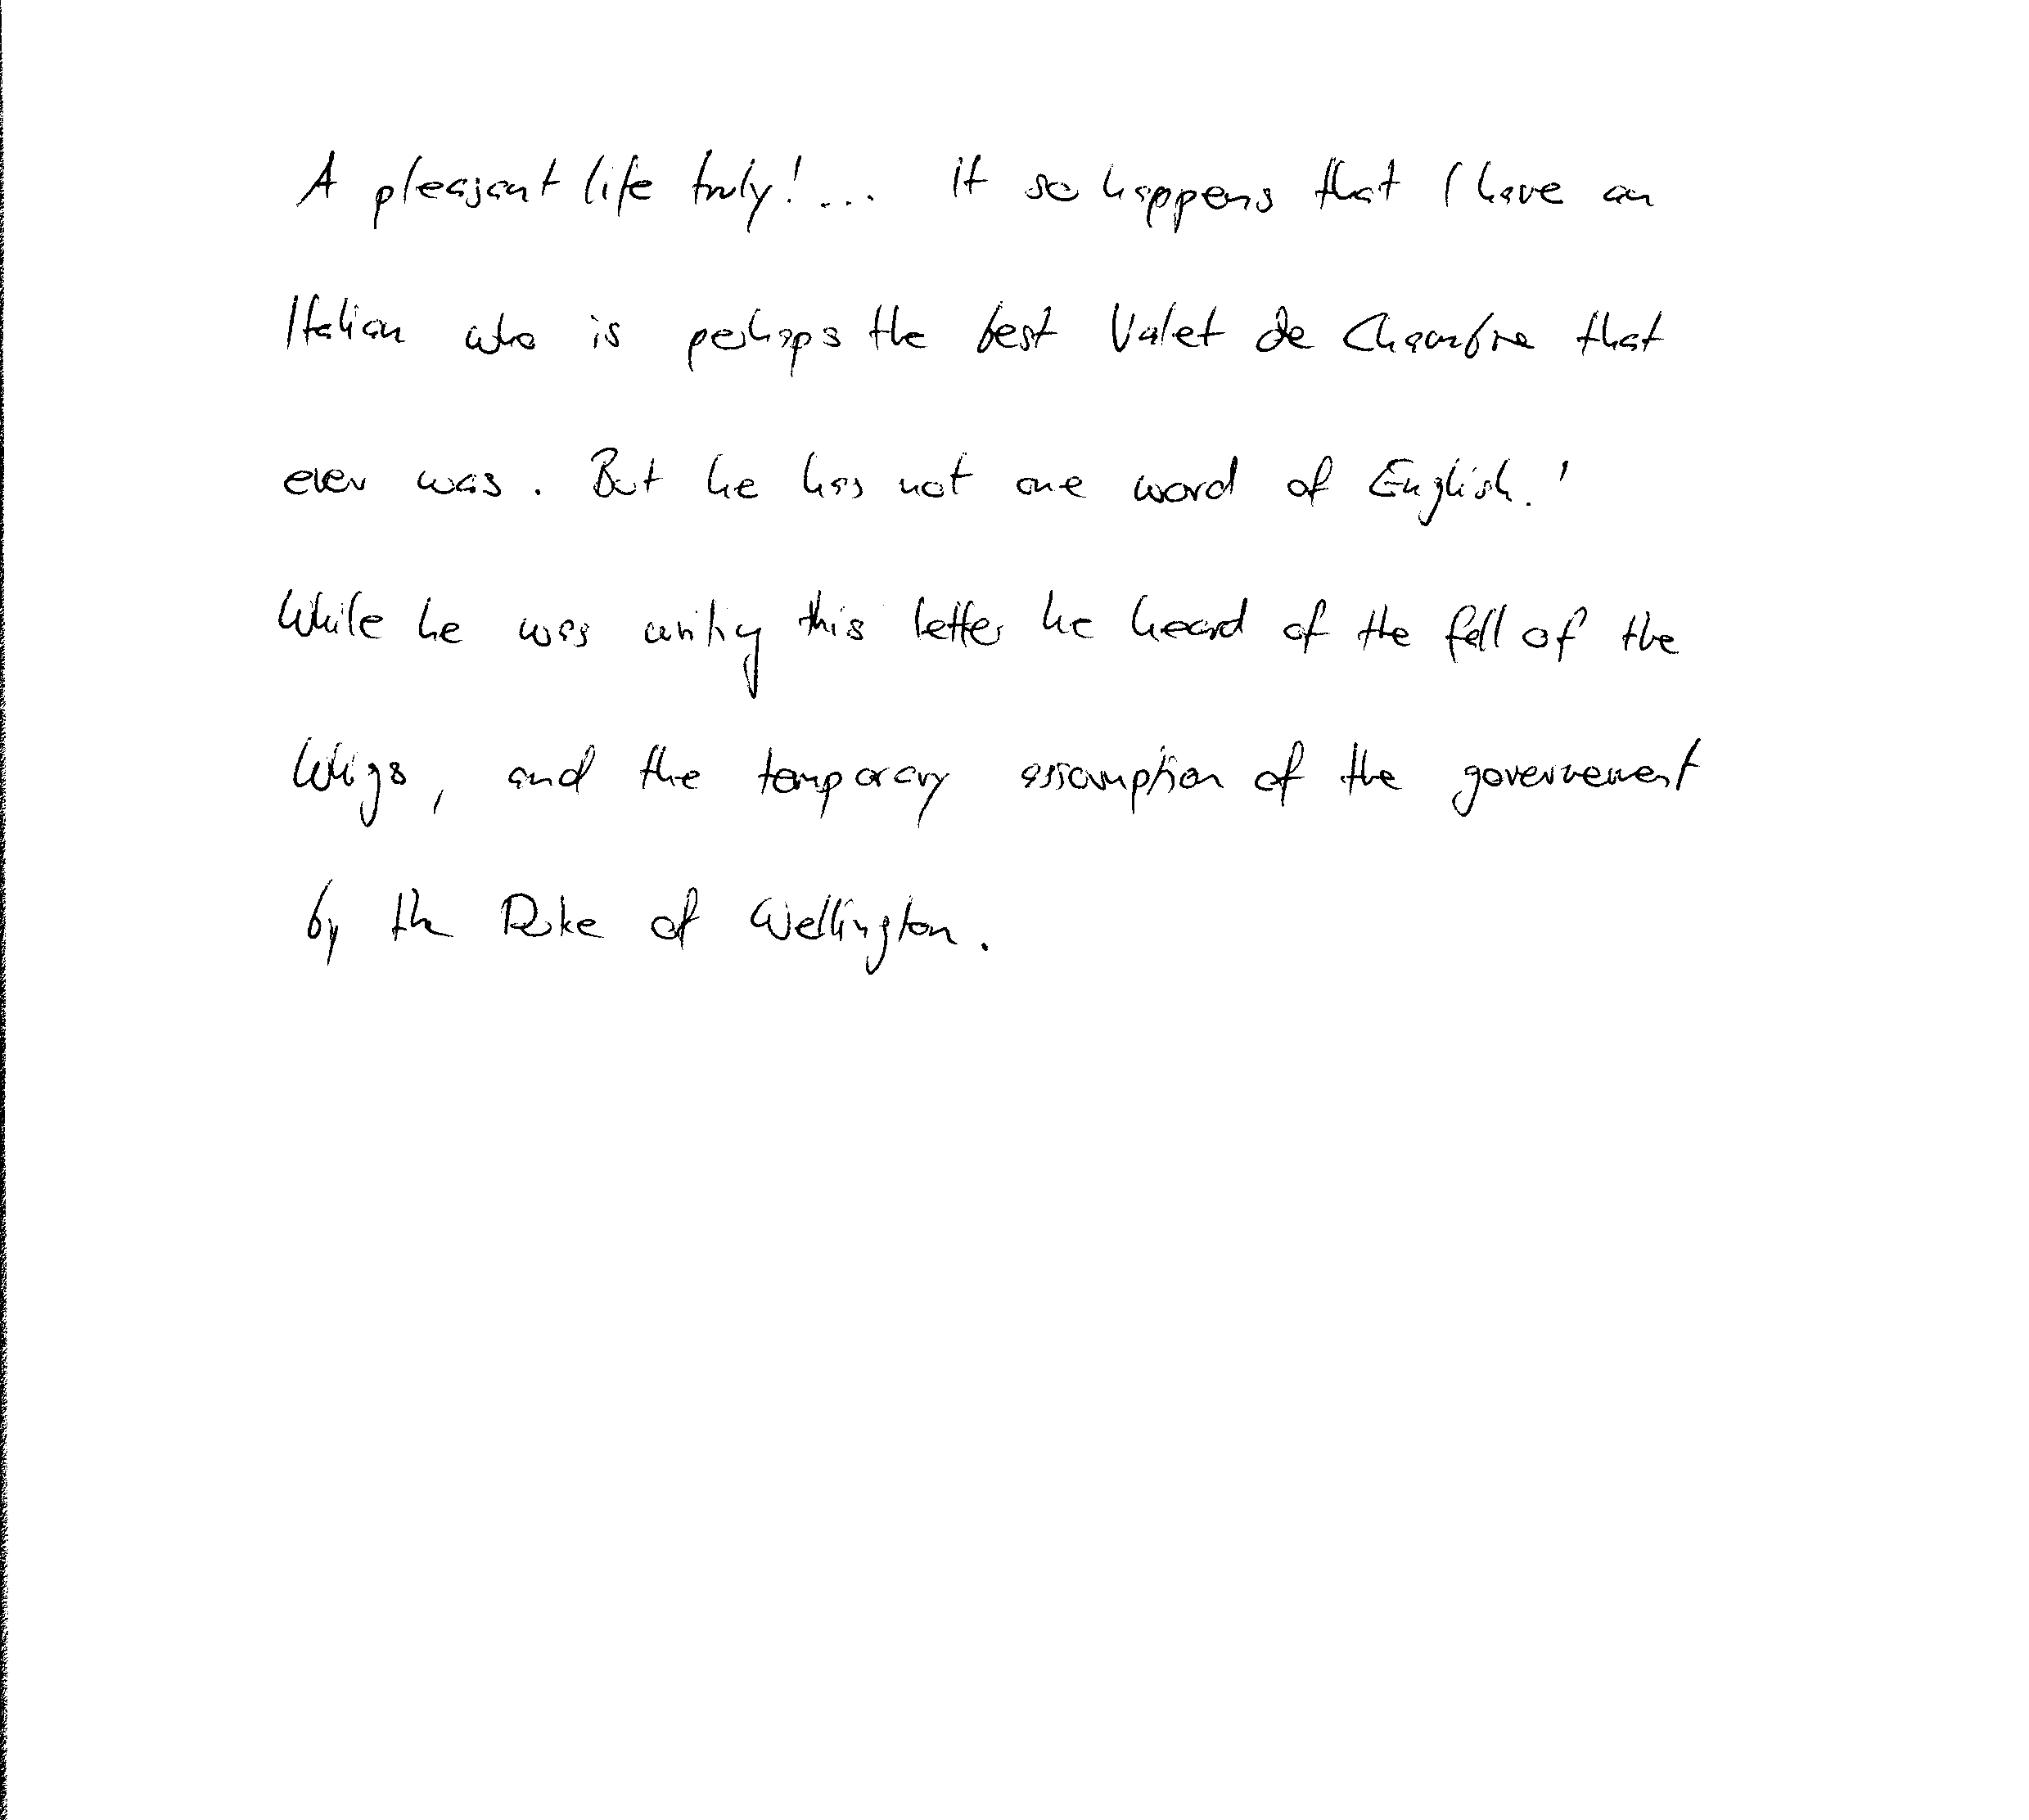 A pleasant life truly! ... It so happens that I have an
Italian who is perhaps the best Valet de Chambre that
ever was. But he has not one word of English.'
While he was writing this letter he heard of the fall of the
Whigs, and the temporary assumption of the government
by the Duke of Wellington.